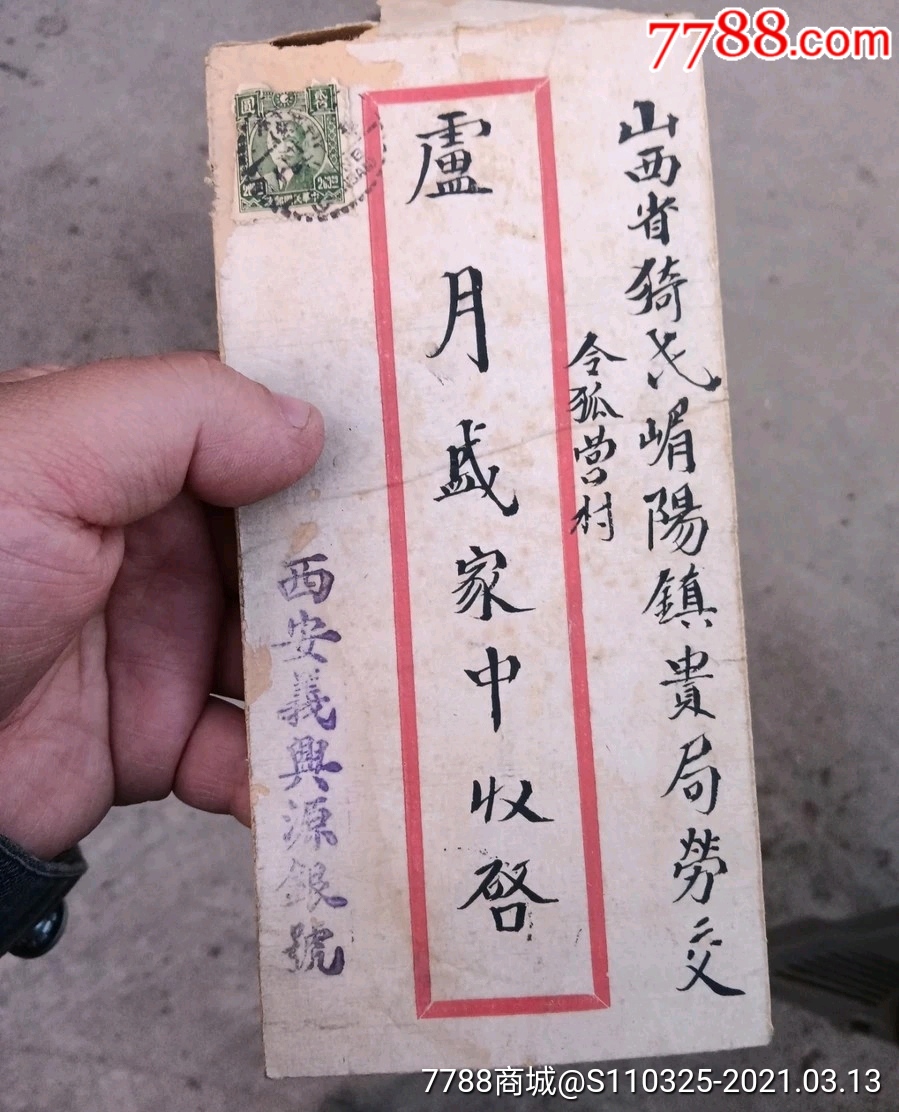 7788.com
山西省猗氏嵋陽鎮貴局勞交
令狐營村
盧月盛家中收啓
西安義興源銀號
7788商城@S110325-2021.03.13